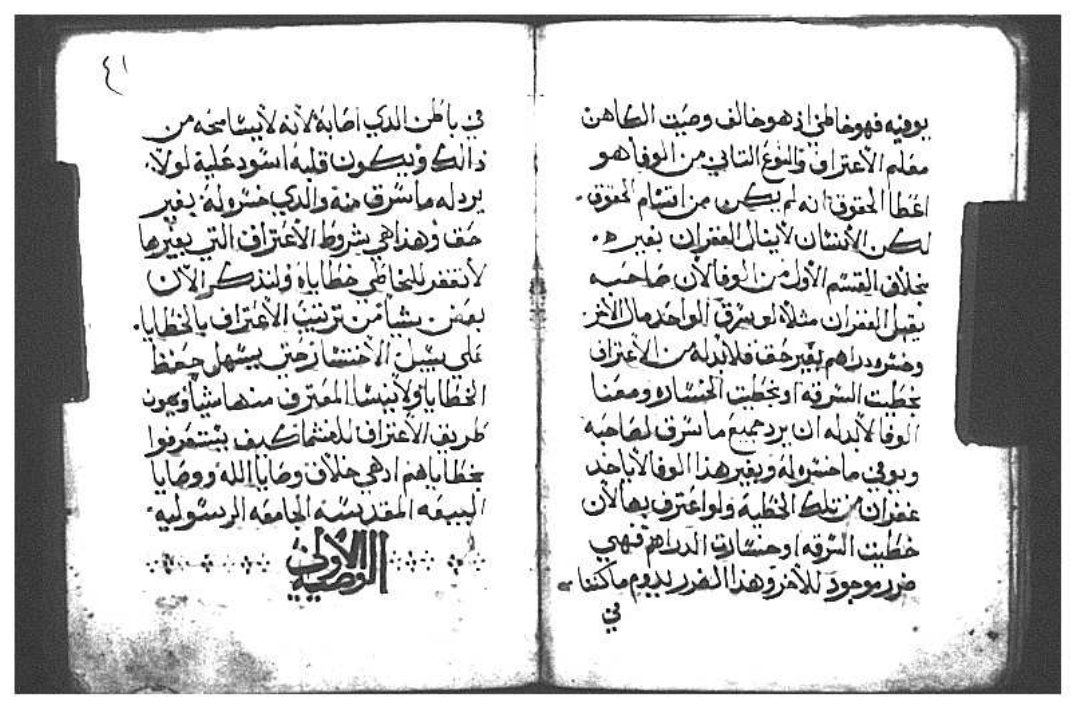 يوفيه فهو خاطي اذ هو خالف وصيت الكاهن
معلم الاعتراف والنوع التاني من الوفا هو
اعطا الحقوق انه لم يكن من اقسام الحقوق.
لكن الانسان لا ينال الغفران بغيره.
بخلاف القسم الاول من الوفا لان صاحبه
يقبل الغفران مثلا لو سرق الواحد مال الاخر
وخسره دراهم بغير حق فلا بد له من الاعتراف
بخطيت السرقه او بخطيت الخساره ومعنا
الوفا لا بد له ان يرد جميع ما سرق لصاحبه
ويوفي ما خسره له وبغير هذا الوفا لا ياخد
غفران من تلك الخطيه ولو اعترف بها لان
خطيت السرقه او خسارت الدراهم فهي
ضرر موجود للاخر وهذا الضرر يدوم ماكننا
في
٤١
في باطن الدي اصابه لانه لا يسامحه من
ذالك ويكون قلبه اسود عليه لولا
يرد له ما سرق منه والدي خسره له بغير
حق وهذا هي شروط الاعتراف التي بغيرها
لا تغفر للخاطي خطاياه ولندكر الان
بعض شيا من ترتيب الاعتراف بالخطايا.
على سبيل الاختصار حتى يسهل حفظ
الخطايا ولا ينسا المعترف منها شيا ويهون
طريق الاعتراف للعلما كيف يستعرفوا
بخطاياهم اد هي خلاف وصايا الله ووصايا
البيعه المقدسه الجامعه الرسوليه.
الوصيه الاولى